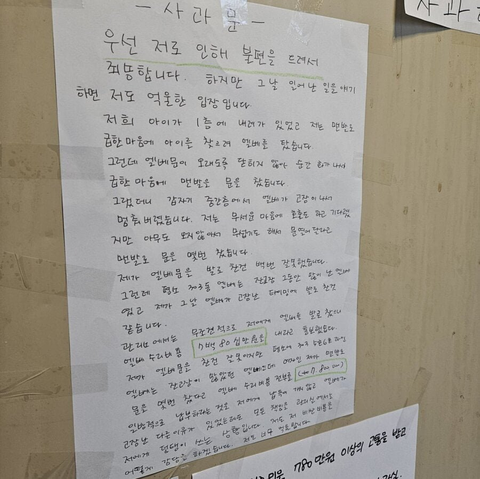 - 사 과 문 -
우선 저로 인해 불편을 드려서
죄송합니다. 하지만 그날 일어난 일을 얘기
하면 저도 억울한 입장입니다
저희 아이가 1층에 내려가 있었고 저는 맨발로
급한 마음에 아이를 찾으러 엘베를 탔습니다.
그런데 엘베문이 오래도록 닫히지 않아 순간 화가 나서
급한 마음에 맨발로 문을 찼습니다
그랬더니 갑자기 중간층에서 엘베가 고장이 나서
멈춰버렸습니다. 저는 무서운 마음에 호출도 하고 기다렸
지만 아무도 오지 않아서 무섭기도 해서 문열어달라고
맨발로 문을 몇번 찼습니다
제가 엘베문을 발로 찬건 백번 잘못했습니다.
그런데 평소 3호 엘베는 잔고장 그동안 많이 난 엘베
였고 제가 그날 엘베가 고장난 타이밍에 발로 찬것
같습니다.
관리소에서는 무조건적으로 저에게 엘베를 발로 찼으니
엘베 수리비를 7백 80 십만원을 내라고 통보했습니다.
제가 엘베문을 찬건 잘못이지만 평소에
엘베는 잔고장이 많았던 엘베인데 여자인 제가 맨발로
문을 몇번 찼다고 엘베 수리비를 전부를
일방적으로 납부하라는 것을 저에게
고장난 다른 이유가 있었는데 모든
저에게 덤탱이 쓰는
어떻게 감당을
780만원 이상의 고통을 받고
사과